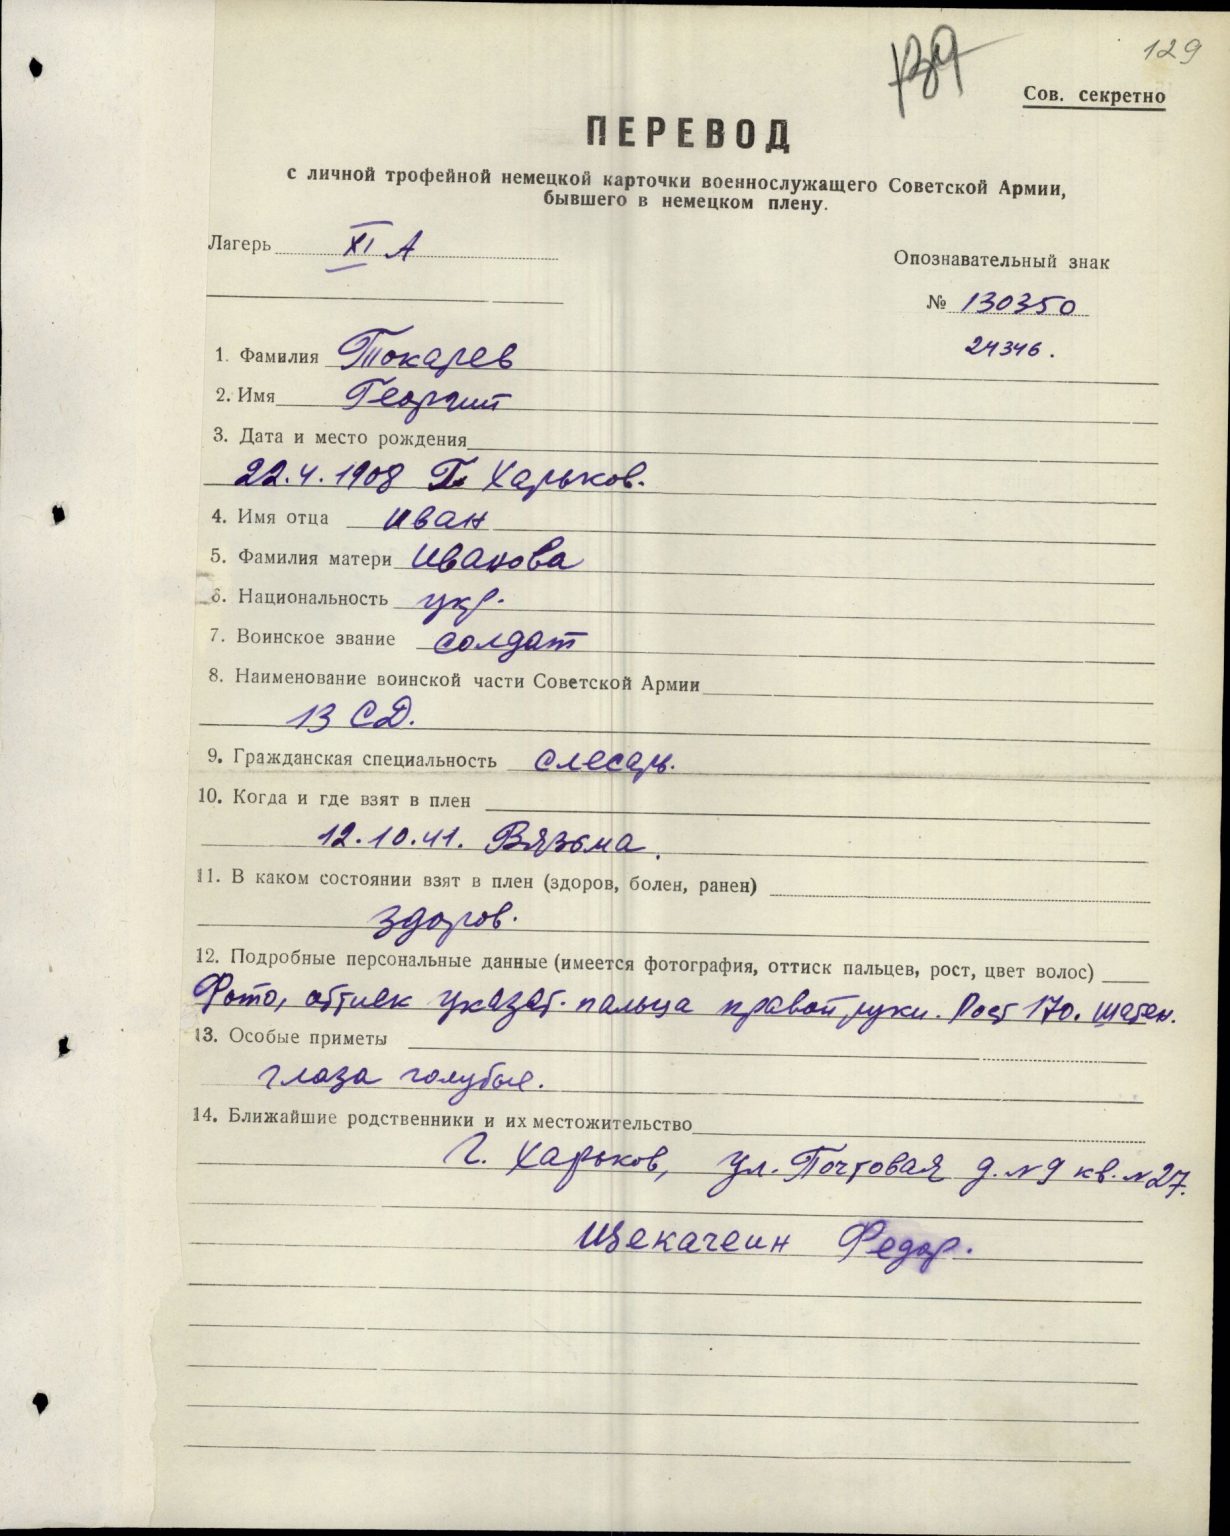 129
139
Сов. секретно
ПЕРЕВОД
с личной трофейной немецкой карточки военнослужащего Советской Армии,
бывшего в немецком плену.
Лагерь XI А
Опознавательный знак
№ 130350
24346.
1. Фамилия Токарев
2. Имя Георгий
3. Дата и место рождения
22.4.1908 Г. Харьков.
4. Имя отца Иван
5. Фамилия матери Иванова
6. Национальность укр.
7. Воинское звание солдат
8. Наименование воинской части Советской Армии
13 СД.
9. Гражданская специальность слесарь.
10. Когда и где взят в плен
12.10.41. Вязьма.
11. В каком состоянии взят в плен (здоров, болен, ранен)
здоров.
12. Подробные персональные данные (имеется фотография, оттиск пальцев, рост, цвет волос)
Фото, оттиск указат. пальца правой руки. Рост 170. шатен.
13. Особые приметы
глаза голубые.
14. Ближайшие родственники и их местожительство
г. Харьков, ул. Почтовая д. №9 кв. №27.
Щекачеин Федор.